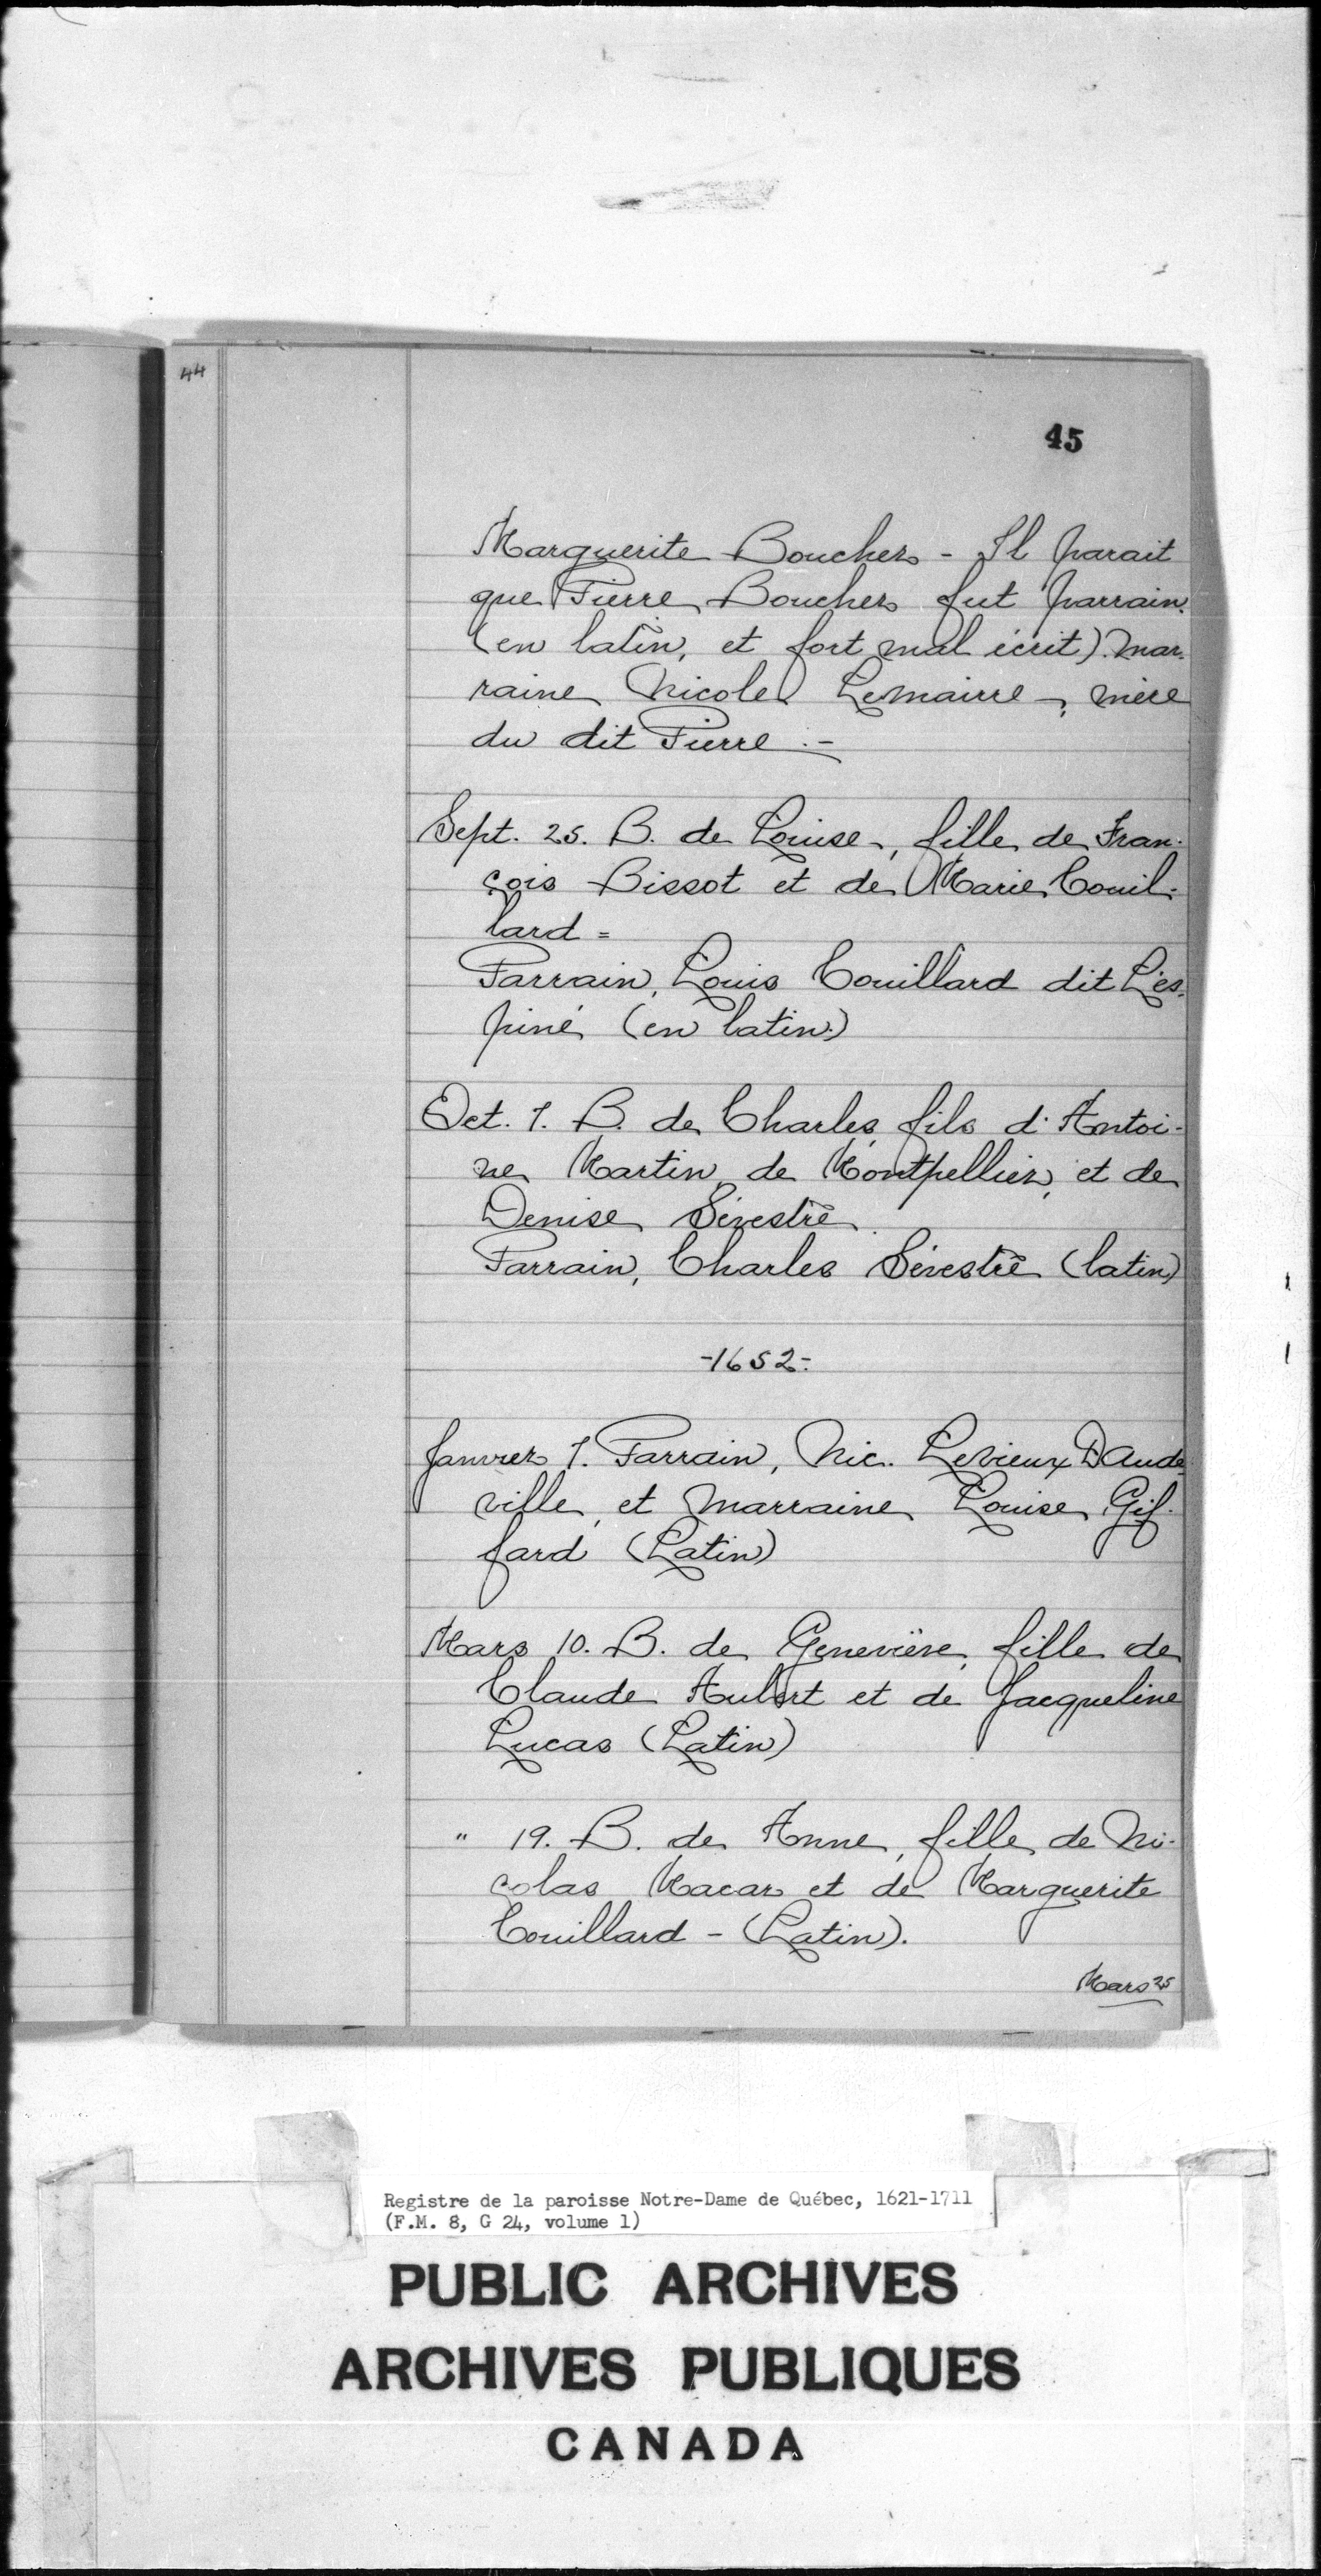 44
45
Marguerite Boucher - Il parait
que Pierre Boucher fut parrain.
(en latin, et fort mal écrit). Mar-
raine Nicole Lemaire, mère
du dit Pierre.-
Sept. 25. B. de Louise, fille de Fran-
çois Bissot et de Marie Couil-
lard =
Parrain, Louis Couillard dit L'es-
piné (en latin.)
Oct. 1. B. de Charles, fils d'Antoi-
ne Martin de Montpellier, et de
Denise Sévestre.
Parrain, Charles Sévestre (latin)
-1652-
Janvier 1. Parrain, Nic. Levieux D'Aude-
ville, et Marraine Louise Gif-
fard (Latin)
Mars 10. B. de Geneviève, fille de
Claude Aubert et de Jacqueline
Lucas (Latin)
" 19. B. de Anne, fille de Ni-
colas Macar et de Marguerite
Couillard - (Latin).
Mars 25
Registre de la paroisse Notre-Dame de Québec, 1621-1711
(F.M. 8, G 24, volume 1)
PUBLIC ARCHIVES
ARCHIVES PUBLIQUES
CANADA